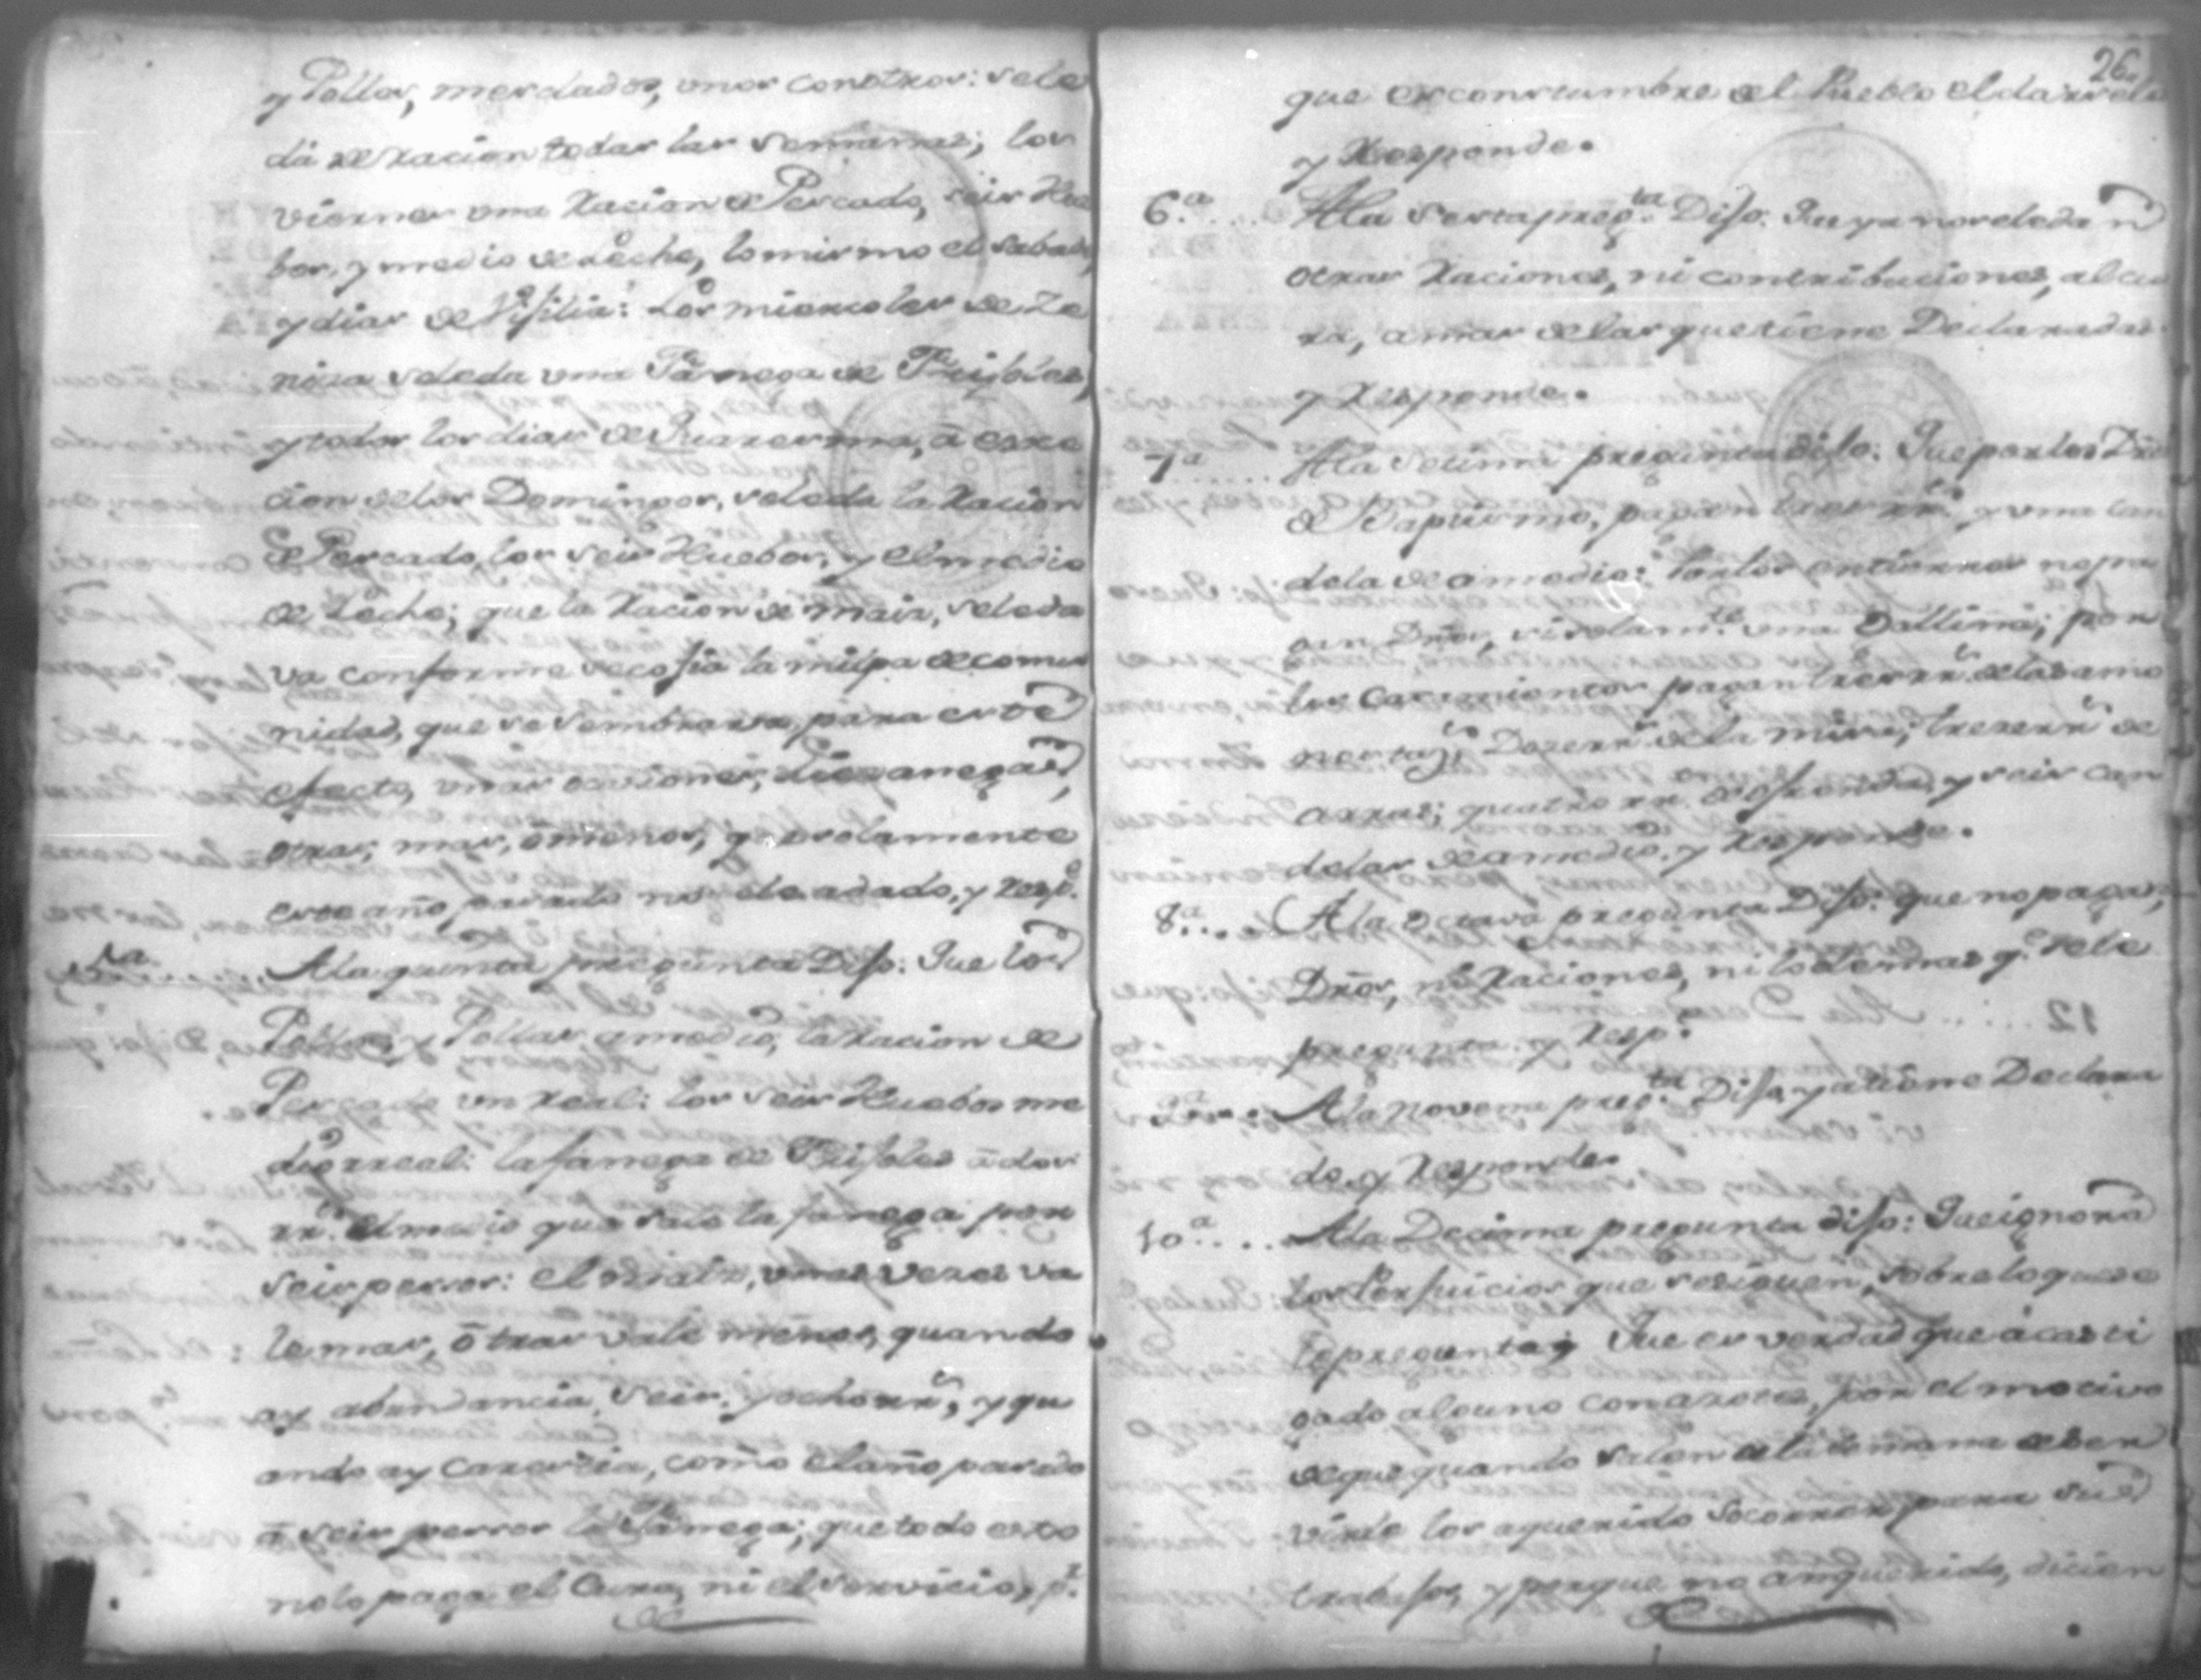 y Pollas, mesclados, unos con otros: se le
dá de racion todas las semanas; los
viernes una Racion de Pescado, seis Hue
bos, y medio de Leche, lo mismo el Sabado,
y dias de Vijilia: Los miercoles de Ze
niza se le da una Fanega de Frijoles,
y todos los dias de Quaresma, â exse
cion de los Domingos, se le da la Racion
de Pescado, los seis Huebos, y el medio
de Leche; que la Racion de maiz, se le da
va conforme se cojia la milpa de comu
nidad, que se sembrava para este
efecto, unas ocasiones, diez anegas,
otras, mas, ô menos, y solamente
este año pasado no se le a dado, y resp.e
5.a Ala quinta pregunta Dijo: Que los
Pollos, y Pollas a medio, la Racion de
Pescado un Real: los seis Huebos me
dio rreal: la fanega de Frijoles â dos
rr.s el medio que sale la fanega por
seis pesos: el maiz, unas vezes va
le mas, ô tras vale menos, quando
ay abundancia, seis, y ocho rr.s, y qu
ando ay carestia, como el año pasado
â seis pesos la Fanega; que todo esto
no lo paga el Cura, ni el servicio, p.r
26.
que es constumbre del Pueblo el darselo
y Responde.
6.a Ala sexta preg.ta Dijo: Que ya no se le da n
otras Raciones, ni contribuciones, al cu
ra, a mas de las que tiene Declaradas
y Responde.
7.a Ala setima pregunta dijo: Que por los Dro
de Baptismo, pagan tres rr.s y una can
dela de a medio: Por los entierros no pa
gan Dros, si solam.te una Gallina; por
los casamientos pagan tres rr.s de las amo
nestaz.s Doze rr.s de la misa; treze rr.s de
arras; quatro rr. de ofrenda, y seis can
delas de a medio. y Responde.
8.a Ala octava pregunta Dijo: que no pagan,
Dros, ni Raciones, ni lo demas q.e se le
pregunta. y Resp.e
9.a Ala novena preg.ta Dijo, ya tiene Declara
do. y Responde.
10.a Ala Decima pregunta dijo: Que ignora
los Perjuicios que se siguen, sobre lo que se
le pregunta; Que es verdad que â casti
gado alguno con azotes, por el motivo
de que quando salen de la semana de ser
virle los a querido socorrer, para su
trabajo, y porque no an querido, dicien